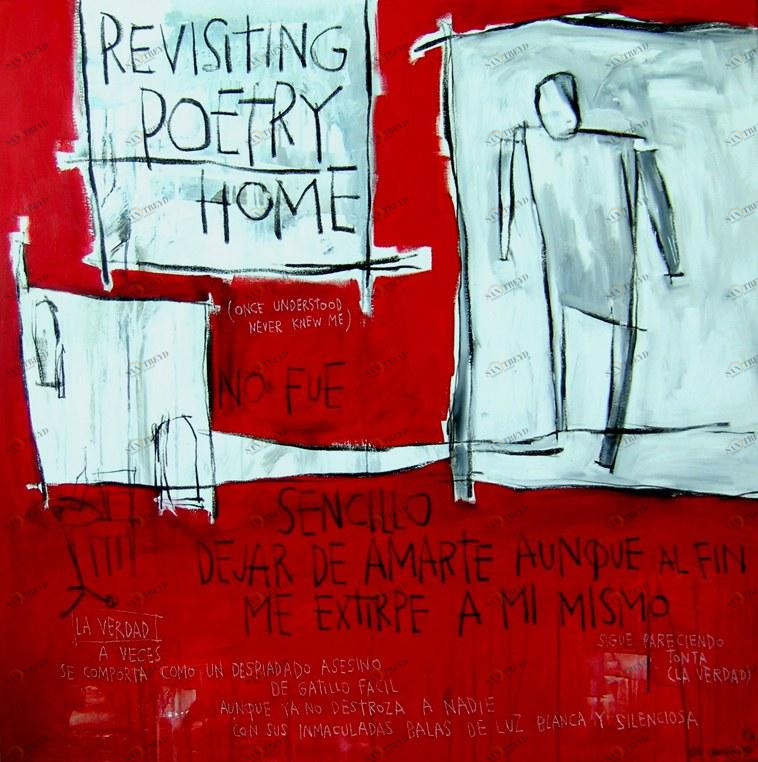 REVISITING
POETRY
HOME
(ONCE UNDERSTOOD
NEVER KNEW ME)
NO FUE
SENCILLO
DEJAR DE AMARTE AUNQUE AL FIN
ME EXTIRPE A MI MISMO
LA VERDAD
A VECES
SE COMPORTA COMO UN DESPIADADO ASESINO
DE GATILLO FACIL
AUNQUE YA NO DESTROZA A NADIE
CON SUS INMACULADAS BALAS DE LUZ BLANCA Y SILENCIOSA
SIGUE PARECIENDO
TONTA
(LA VERDAD)
SAN TREYD